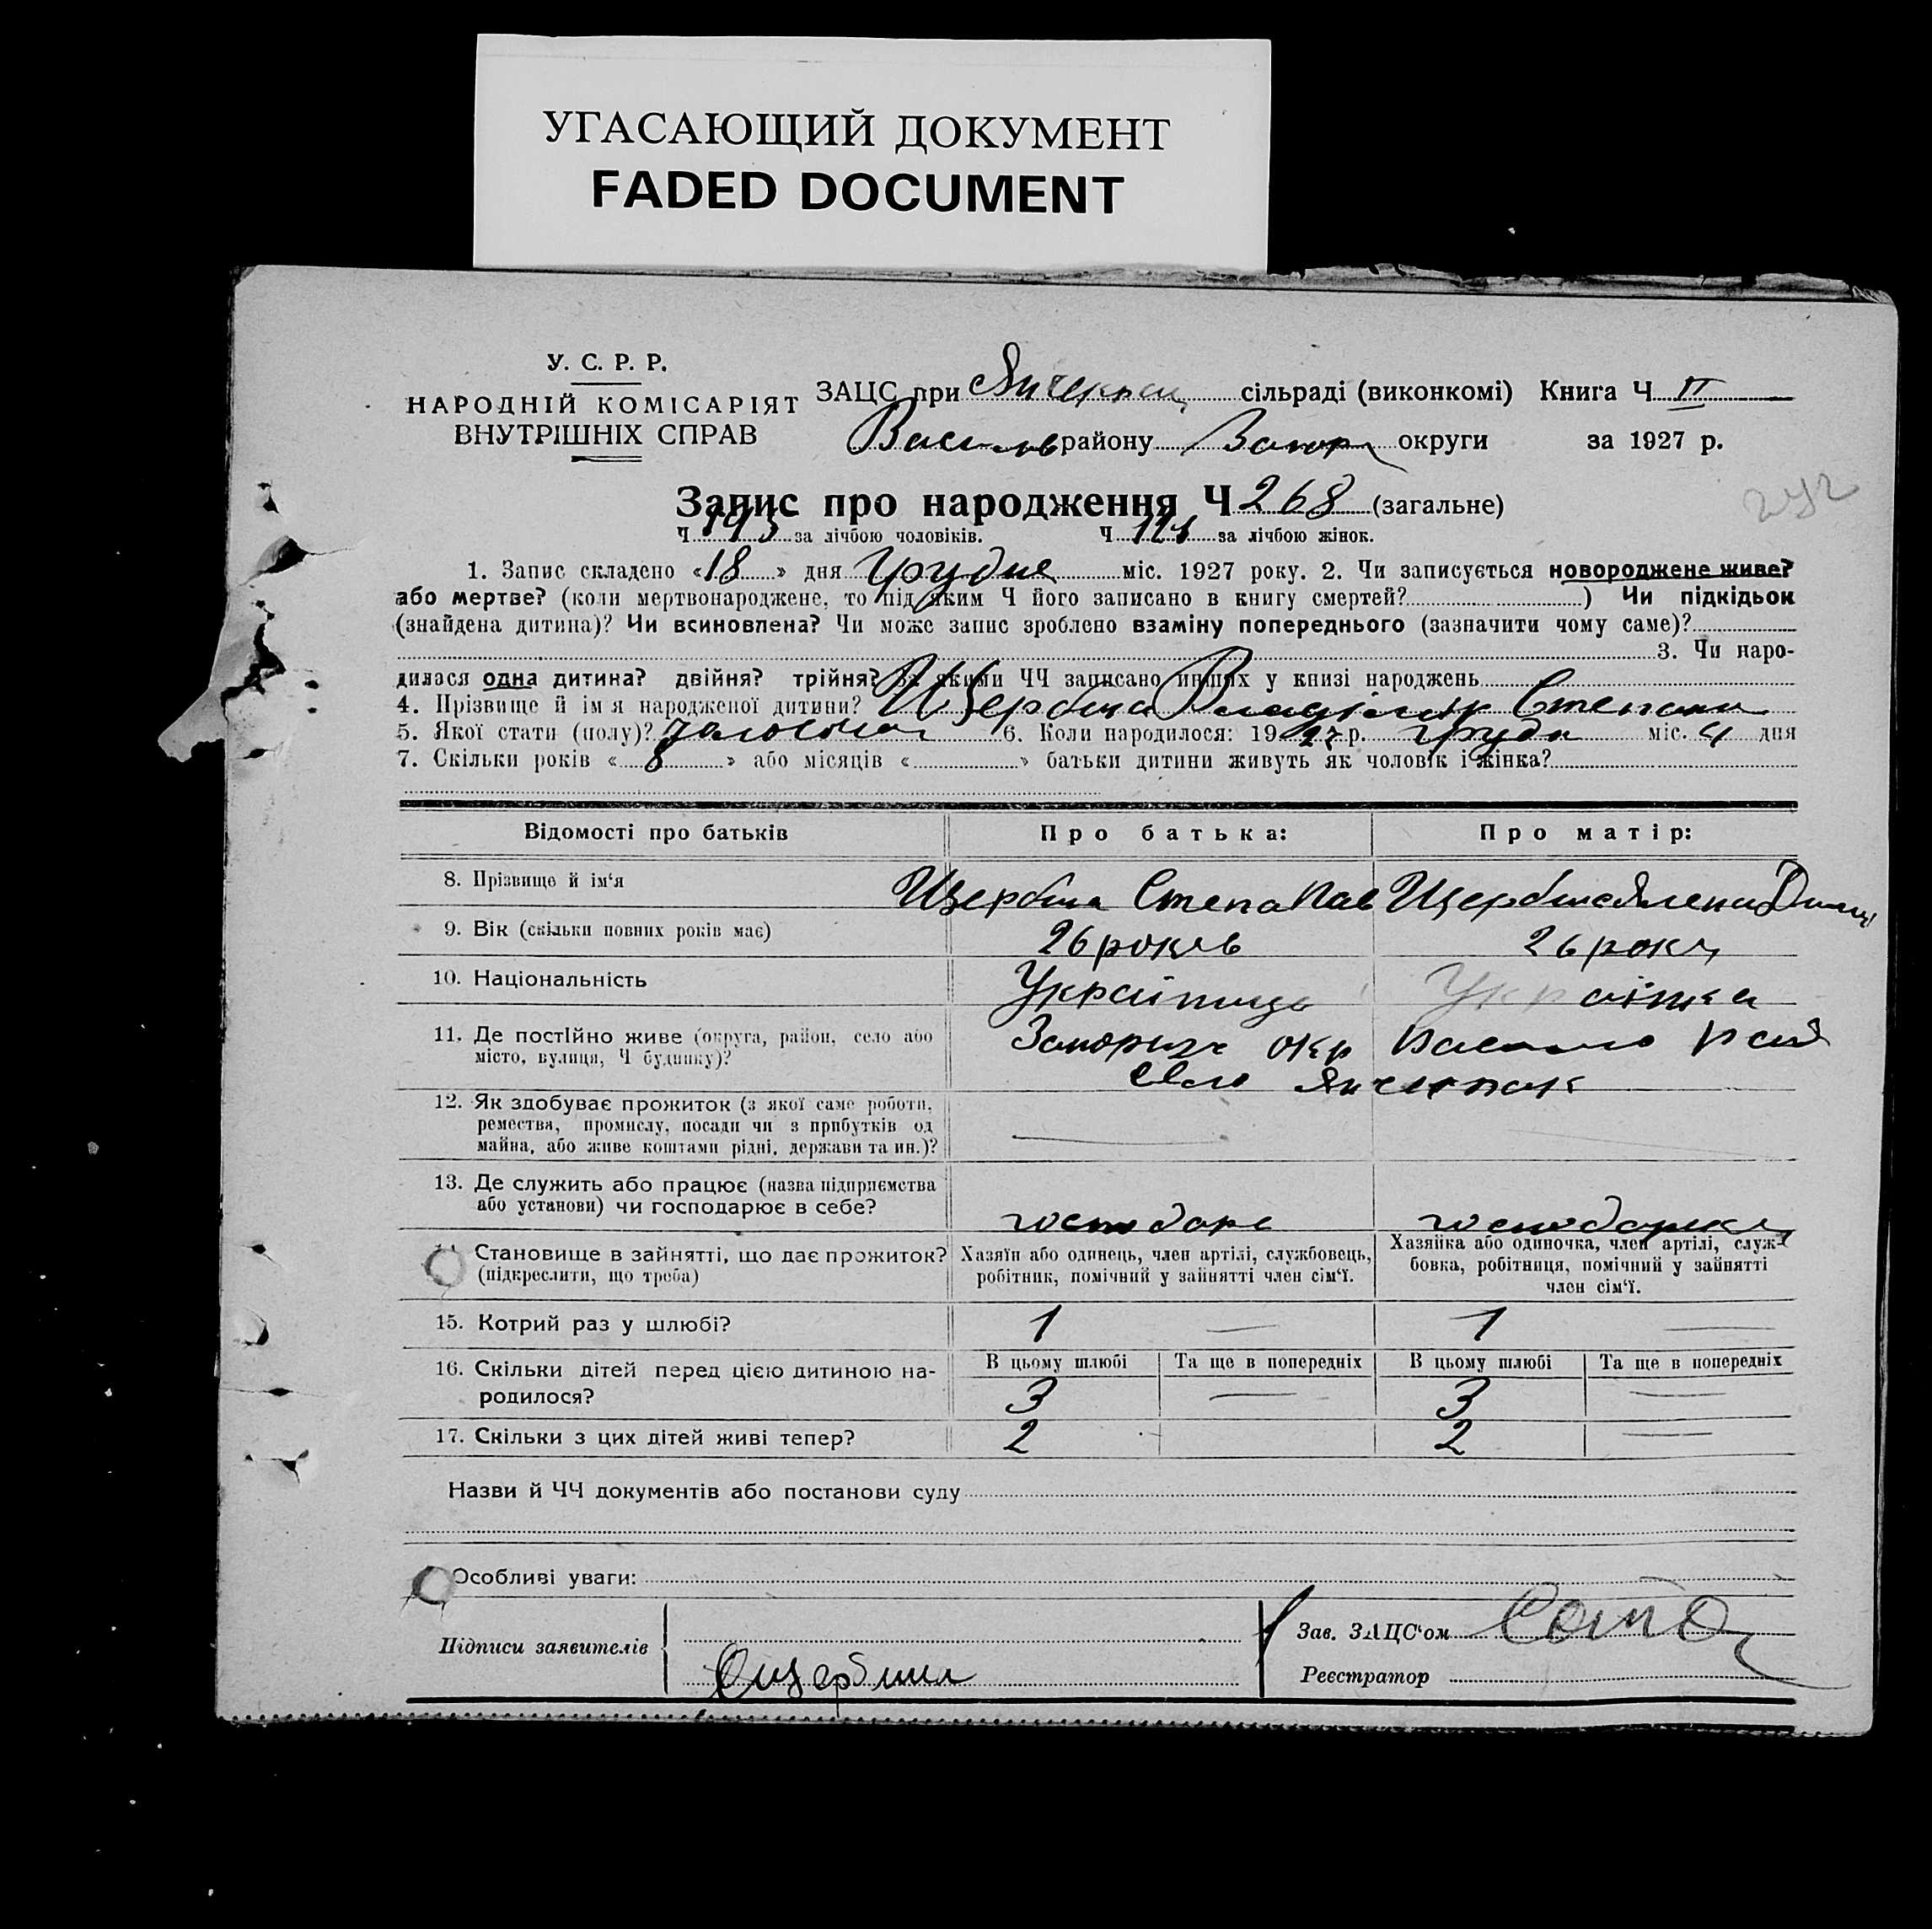 УГАСАЮЩИЙ ДОКУМЕНТ
FADED DOCUMENT
У. С. Р. Р.
НАРОДНІЙ КОМІСАРІЯТ
ВНУТРІШНІХ СПРАВ
ЗАЦС при сільраді (виконкомі) Книга Ч II
Василів району Запор округи за 1927 р.
Запис про народження Ч 268 (загальне)
Ч 143 за лічбою чоловіків. Ч за лічбою жінок.
1. Запис складено «18» дня Грудня міс. 1927 року. 2. Чи записується новороджене живе?
або мертве? (коли мертвонароджене, то під яким Ч його записано в книгу смертей? ) Чи підкідьок
(знайдена дитина)? Чи всиновлена? Чи може запис зроблено взаміну попереднього (зазначити чому саме)?
3. Чи наро-
дилася одна дитина? двійня? трійня? За якими ЧЧ записано инших у книзі народжень
4. Прізвище й ім'я народженої дитини? Щербина Степан
5. Якої стати (полу)? 6. Коли народилося: 1927 р. Грудн міс. 4 дня
7. Скільки років «8» або місяців « » батьки дитини живуть як чоловік і жінка?
Відомості про батьків Про батька: Про матір:
8. Прізвище й ім'я Щербина Степа Пав Щербина
9. Вік (скільки повних років має) 26 років 26 років
10. Національність Українець Українка
11. Де постійно живе (округа, район, село або
місто, вулиця, Ч будинку)? Запорізь окр рай
Село Янчекрак
12. Як здобуває прожиток (з якої саме роботи,
ремества, промислу, посади чи з прибутків од
майна, або живе коштами рідні, держави та ин.)?
13. Де служить або працює (назва підприємства
або установи) чи господарює в себе? господарь господарка
Становище в зайнятті, що дає прожиток? (підкреслити, що треба)
Хазяїн або одинець, член артілі, службовець,
робітник, помічний у зайнятті член сім'ї.
Хазяйка або одиночка, член артілі, служ-
бовка, робітниця, помічний у зайнятті
член сім'ї.
15. Котрий раз у шлюбі? 1 — 1 —
16. Скільки дітей перед цією дитиною на-
родилося?
В цьому шлюбі Та ще в попередніх В цьому шлюбі Та ще в попередніх
3 — 3 —
17. Скільки з цих дітей живі тепер? 2 2 —
Назви й ЧЧ документів або постанови суду
Особливі уваги:
Підписи заявителів
Щербина
Зав. ЗАЦС'ом
Реєстратор